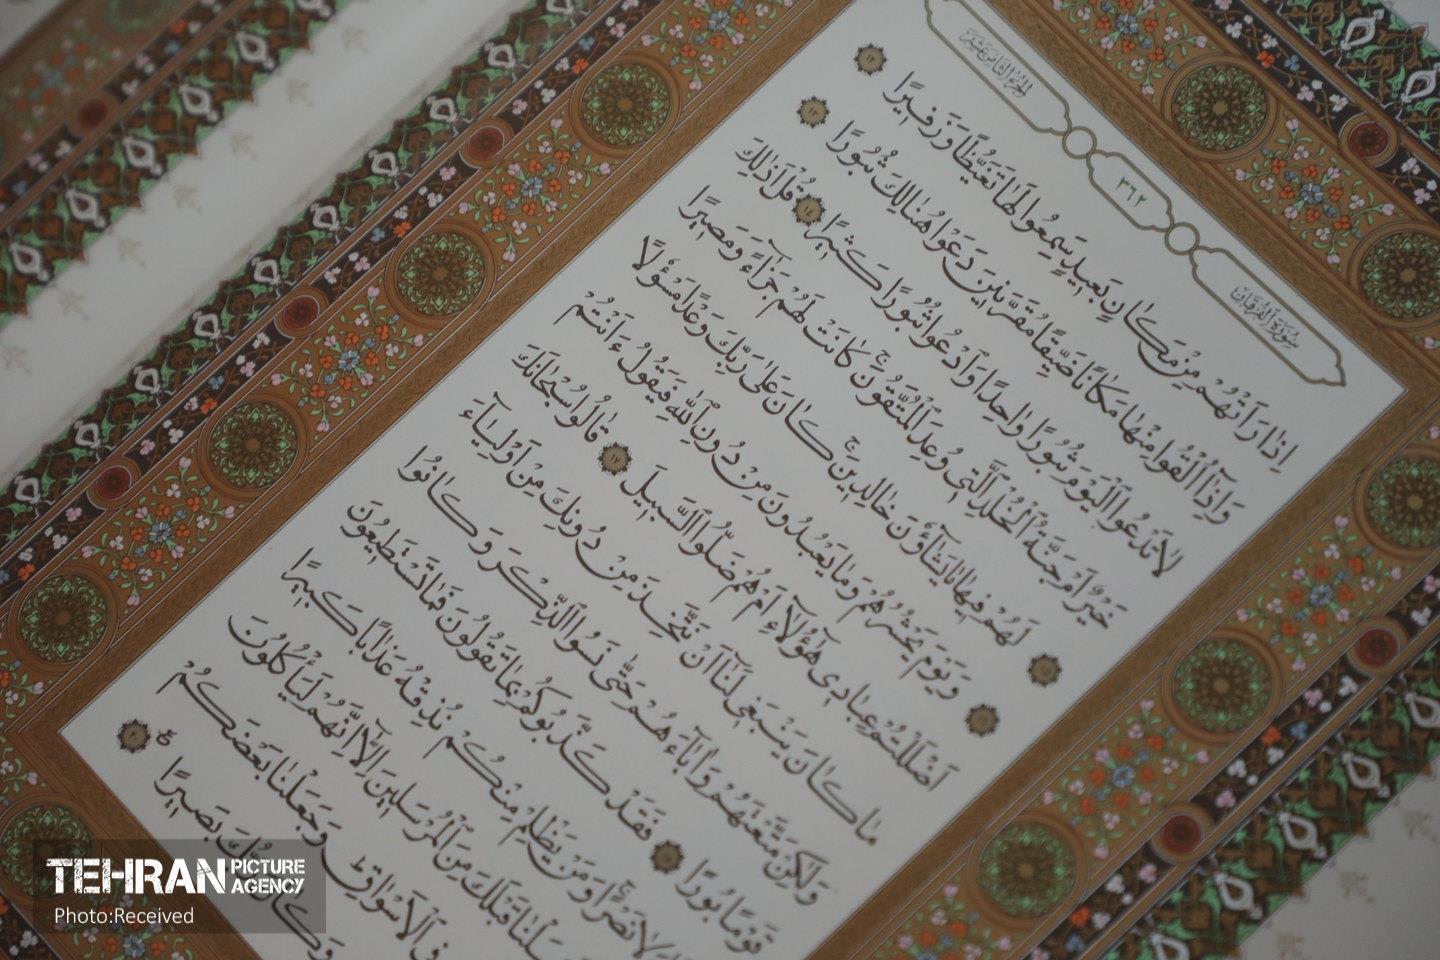 الجزء الثامن عشر
٣٦٢
سورة الفرقان
اِذَا رَاَتْهُمْ مِنْ مَكَانٍ بَعِيدٍ سَمِعُوا لَهَا تَغَيُّظًا وَزَفِيرًا ١٢
وَاِذَا اُلْقُوا مِنْهَا مَكَانًا ضَيِّقًا مُقَرَّنِينَ دَعَوْا هُنَالِكَ ثُبُورًا ١٣
لَا تَدْعُوا الْيَوْمَ ثُبُورًا وَاحِدًا وَادْعُوا ثُبُورًا كَثِيرًا ١٤ قُلْ اَذٰلِكَ
خَيْرٌ اَمْ جَنَّةُ الْخُلْدِ الَّتِي وُعِدَ الْمُتَّقُونَ كَانَتْ لَهُمْ جَزَآءً وَمَصِيرًا
لَهُمْ فِيهَا مَا يَشَآؤُنَ خَالِدِينَ كَانَ عَلٰى رَبِّكَ وَعْدًا مَسْؤُلًا
وَيَوْمَ يَحْشُرُهُمْ وَمَا يَعْبُدُونَ مِنْ دُونِ اللّٰهِ فَيَقُولُ ءَاَنْتُمْ
اَضْلَلْتُمْ عِبَادِى هٰؤُلَآءِ اَمْ هُمْ ضَلُّوا السَّبِيلَ ١٧ قَالُوا سُبْحَانَكَ
مَا كَانَ يَنْبَغِى لَنَآ اَنْ نَتَّخِذَ مِنْ دُونِكَ مِنْ اَوْلِيَآءَ
وَلٰكِنْ مَتَّعْتَهُمْ وَاٰبَآءَهُمْ حَتّٰى نَسُوا الذِّكْرَ وَكَانُوا
قَوْمًا بُورًا فَقَدْ كَذَّبُوكُمْ بِمَا تَقُولُونَ فَمَا تَسْتَطِيعُونَ
لَا نَصْرًا وَمَنْ يَظْلِمْ مِنْكُمْ نُذِقْهُ عَذَابًا كَبِيرًا
قَبْلَكَ مِنَ الْمُرْسَلِينَ اِلَّآ اِنَّهُمْ لَيَأْكُلُونَ
فِى الْاَسْوَاقِ وَجَعَلْنَا بَعْضَكُمْ
وَكَانَ رَبُّكَ بَصِيرًا
TEHRAN PICTURE AGENCY
Photo:Received